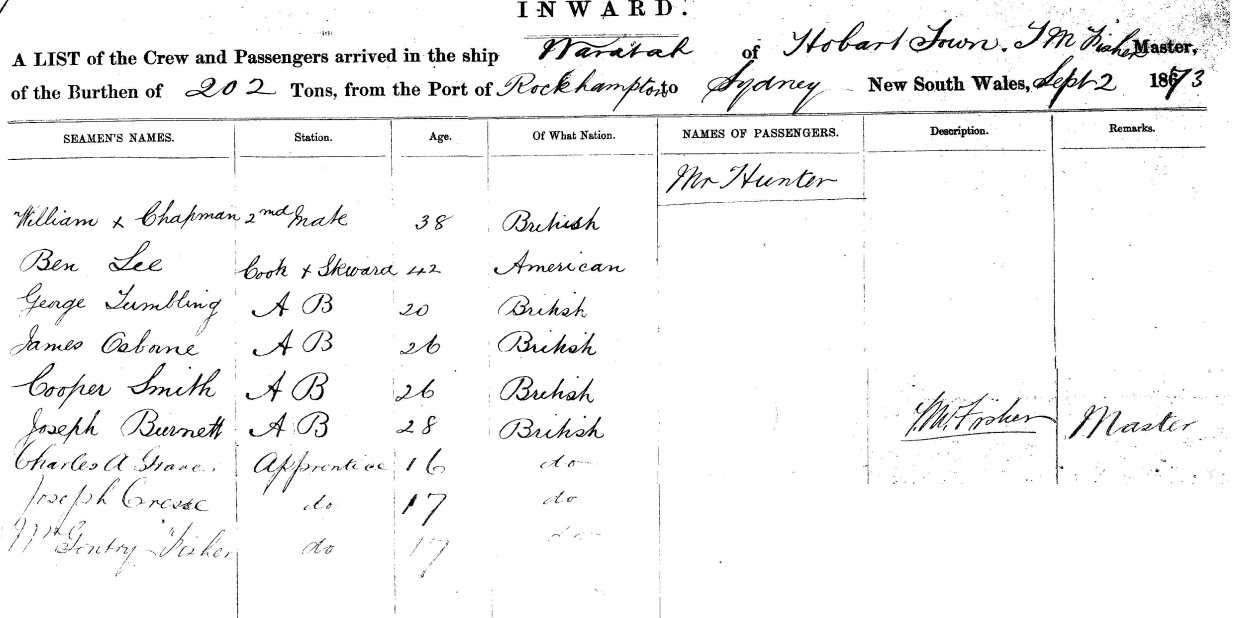 INWARD.
A LIST of the Crew and Passengers arrived in the ship Waratah of Hobart Town. J M Fisher Master,
of the Burthen of 202 Tons, from the Port of Rockhampton to Sydney New South Wales, Sept 2 1873
SEAMEN'S NAMES. Station. Age. Of What Nation. NAMES OF PASSENGERS. Description. Remarks.
Mr Hunter
William x Chapman 2nd Mate 38 British
Ben Lee Cook + Steward 42 American
George Tumbling A B 20 British
James Osborne A B 26 British
Cooper Smith A B 26 British
Joseph Burnett A B 28 British J M Fisher Master
Charles A Apprentice 16 do
Joseph do 17 do
Gentry Fisher do 17 do